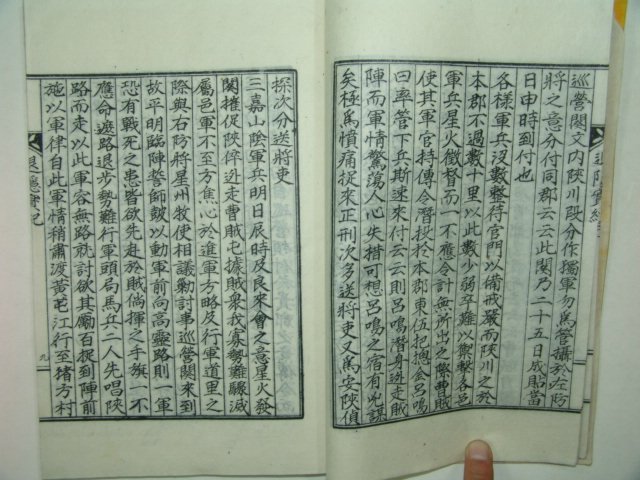 巡營關文內陜川段分作獨軍勿爲管攝於左防
將之意分付同郡云云此関乃二十五日成貼當
日申時到付也
各樣軍兵沒數整待官門以備戒嚴而陜川之於
本郡不過數十里以此數少弱卒難以禦擊各邑
軍兵星火徵督而一不應令計無所出之際曹賊
使其軍官持傳令潛投於本郡東伍把摠金呂鳴
曰率管下兵斯速來付云云則呂鳴潛身逃走賊
陣而軍情驚蕩人心失措可想呂鳴之宿有兇謀
矣極爲憤痛捉來正刑次多送將吏又爲安陜偵
探次分送將吏
三嘉山陰軍兵明日辰時及良來會之意星火發
関催促陜倅逃走曹賊屯據賊衆我寡勢難驅滅
屬邑軍不至方焦心於進軍方略及行軍道里之
際與右防將星州牧使相議勦討事巡營関來到
故平明臨陣誓師鼓以動軍前向高靈路則一軍
恐有戰死之患皆欲先赴於賊倘揮之手旗一不
應命遮路退步勢難行軍頭局馬兵二人先唱陜
路而走以此軍容無路就討欲其勵百捉到陣前
施以軍律自此軍情稍肅渡黃芚江行至緖方村
退隱實記
九